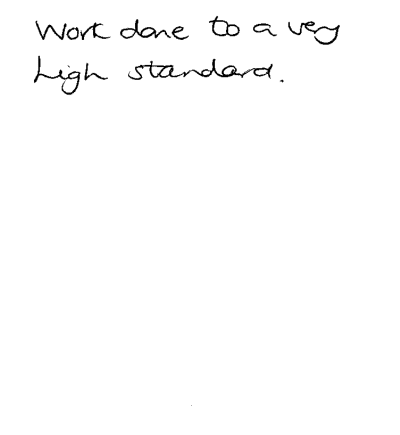 Work done to a very
high standard.